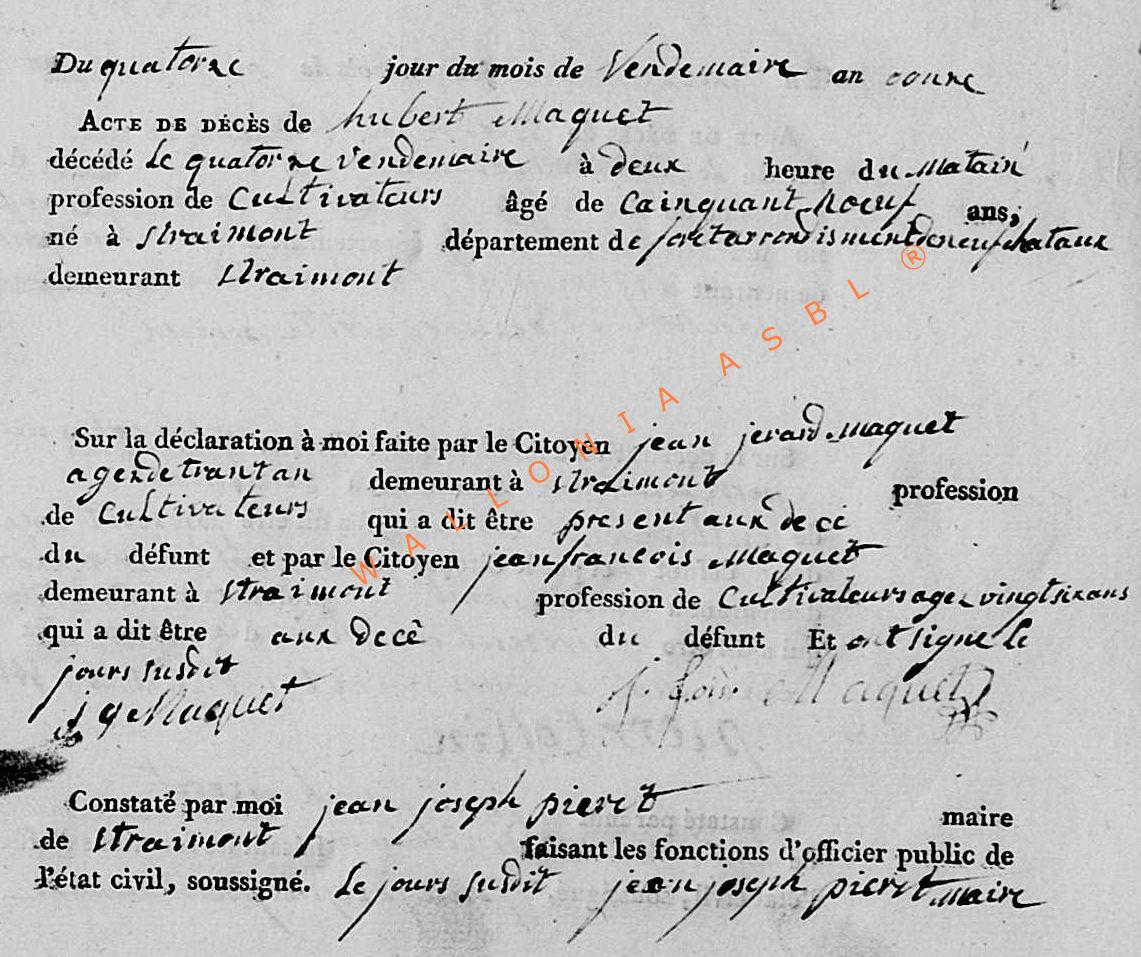 Du quatorze jour du mois de Vendemaire an onze
ACTE DE DÉCÈS de hubert Maquet
décédé Le quatorze Vendemaire à deux heure du Matain
profession de Cultivateurs âgé de Cainquant noeuf ans,
né à Straimont département de foret arrondisment de neufchataux
demeurant Straimont
Sur la déclaration à moi faite par le Citoyen jean jerard Maquet
age de trant an demeurant à Straimont profession
de Cultivateurs qui a dit être present aux decé
du défunt et par le Citoyen jean francois Maquet
demeurant à Straimont profession de Cultivateurs agez vingt six ans
qui a dit être aux decê du défunt Et ont signe le
jours susdit
j g Maquet j. fois. Maquet
Constaté par moi jean joseph pieret maire
de Straimont faisant les fonctions d'officier public de
l'état civil, soussigné. Le jours susdit jean joseph pieret Maire
WALLONIA ASBL ®